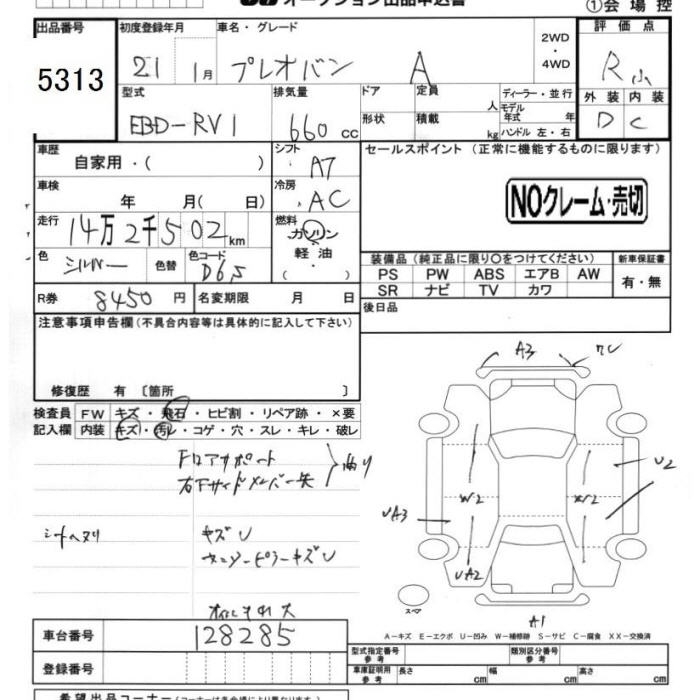 オークション出品申込書
①会場控
出品番号 初度登録年月 車名・グレード 2WD・4WD 評価点
5313 21 1月 プレオバン A R
外装 内装
D C
型式 排気量 ドア 定員 人 ディーラー・並行
EBD-RV1 660cc 形状 積載 kg モデル年式 年
ハンドル 左・右
車歴 シフト セールスポイント (正常に機能するものに限ります)
自家用・( ) AT
車検 冷房 NOクレーム・売切
年 月( 日) AC
走行 燃料
14万2千502km ガソリン
軽油
・( )
色 色替 色コード 装備品(純正品に限り○をつけてください) 新車保証書
シルバー D65 PS PW ABS エアB AW 有・無
SR ナビ TV カワ
R券 8450円 名変期限 月 日 後日品
注意事項申告欄(不具合内容等は具体的に記入して下さい)
修復歴 有〔箇所 〕
検査員 FW キズ・飛石・ヒビ割・リペア跡・×要
記入欄 内装 キズ・汚レ・コゲ・穴・スレ・キレ・破レ
A3
Fロアサポート
右下サイドメンバー先
U2
W2
UA3
キズU
センターピラーキズU
UA2
スペア
A1
A−キズ E−エクボ U−凹み W−補修跡 S−サビ C−腐食 XX−交換済
車台番号 128285
登録番号
型式指定番号 参考 類別区分番号 参考
車庫証明用 参考 長さ cm 幅 cm 高さ cm
希望出品コーナー